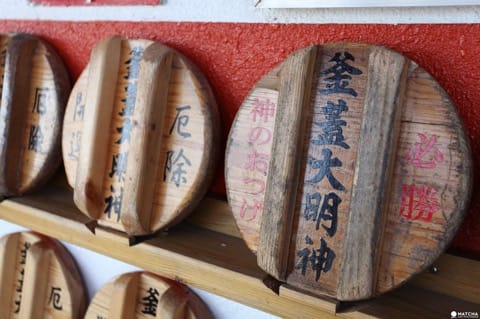 釜蓋大明神
必勝
神のおつげ
釜蓋大明神
厄除
開運
厄除
釜
厄
MATCHA